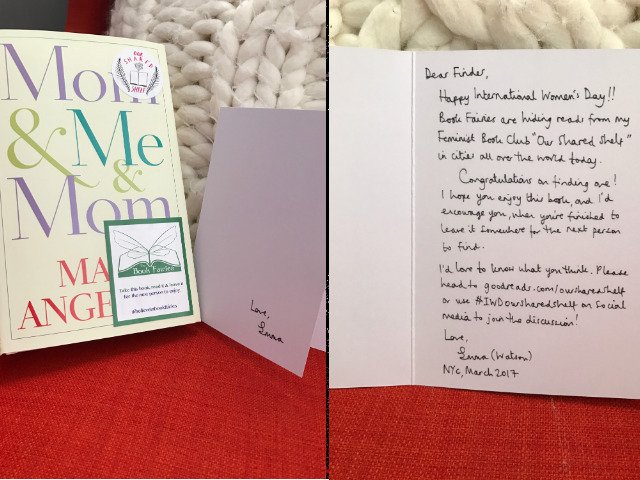 OUR
SHARED
SHELF
Mom
& Me
&
Mom
MA
ANGE
the
Book Fairies
Take this book, read it & leave it
for the next person to enjoy.
#ibelieveinbookfairies
Love,
Emma
Dear Finder,
Happy International Women's Day!!
Book Fairies are hiding reads from my
Feminist Book Club "Our Shared Shelf"
in cities all over the world today.
Congratulations on finding one!
I hope you enjoy this book, and I'd
encourage you, when you're finished to
leave it somewhere for the next person
to find.
I'd love to know what you think. Please
head to goodreads.com/oursharedshelf
or use #IWDoursharedshelf on social
media to join the discussion!
Love,
Emma (Watson)
NYC, March 2017